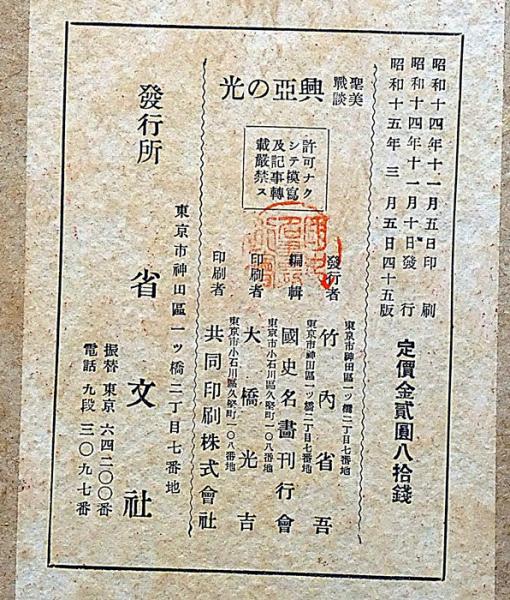 昭和十四年十一月五日印刷
昭和十四年十一月十日發行
昭和十五年三月五日四十五版
定價金貳圓八拾錢
聖戰美談
興亞の光
許可ナク
シテ模寫
及記事轉
載嚴禁ス
東京市神田區一ツ橋二丁目七番地
發行者 竹內省吾
東京市神田區一ツ橋二丁目七番地
編輯 國史名畫刊行會
東京市小石川區久堅町一〇八番地
印刷者 大橋光吉
東京市小石川區久堅町一〇八番地
印刷者 共同印刷株式會社
東京市神田區一ツ橋二丁目七番地
發行所 省文社
振替東京六四二〇〇番
電話九段三〇九七番